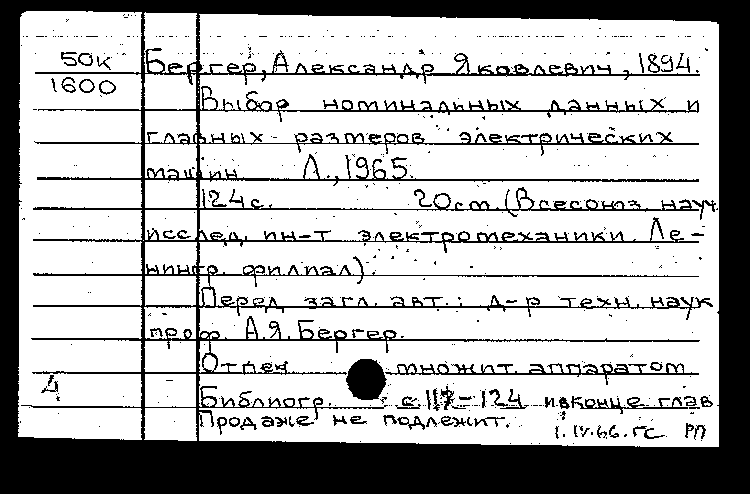 50к Бергер, Александр Яковлевич, 1894.
1600
Выбор номинальных данных и
главных размеров электрических
машин Л., 1965.
124с. 20см. (Всесоюз. науч.
исслед. ин-т электромеханики. Ле-
нингр. филиал).
Перед загл. авт.: д-р техн. наук
проф. А.Я. Бергер.
Отпеч множит. аппаратом
4
Библиогр. с. 117-124 и в конце глав
Продаже не подлежит.
1.IV.66.ГС РП